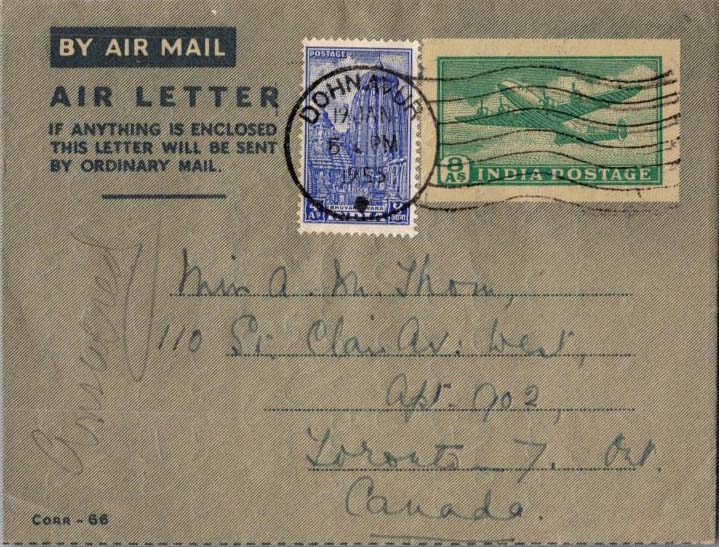 BY AIR MAIL
AIR LETTER
IF ANYTHING IS ENCLOSED
THIS LETTER WILL BE SENT
BY ORDINARY MAIL.
POSTAGE
BHUVANESWARA
4 AS
INDIA
DOHNAVUR
19 JAN
PM
1955
8 AS INDIA POSTAGE
Answered
Miss A. M. Thom,
110 St. Clair Av: West,
Apt. 902,
Toronto 7. Ont.
Canada.
CORR - 66